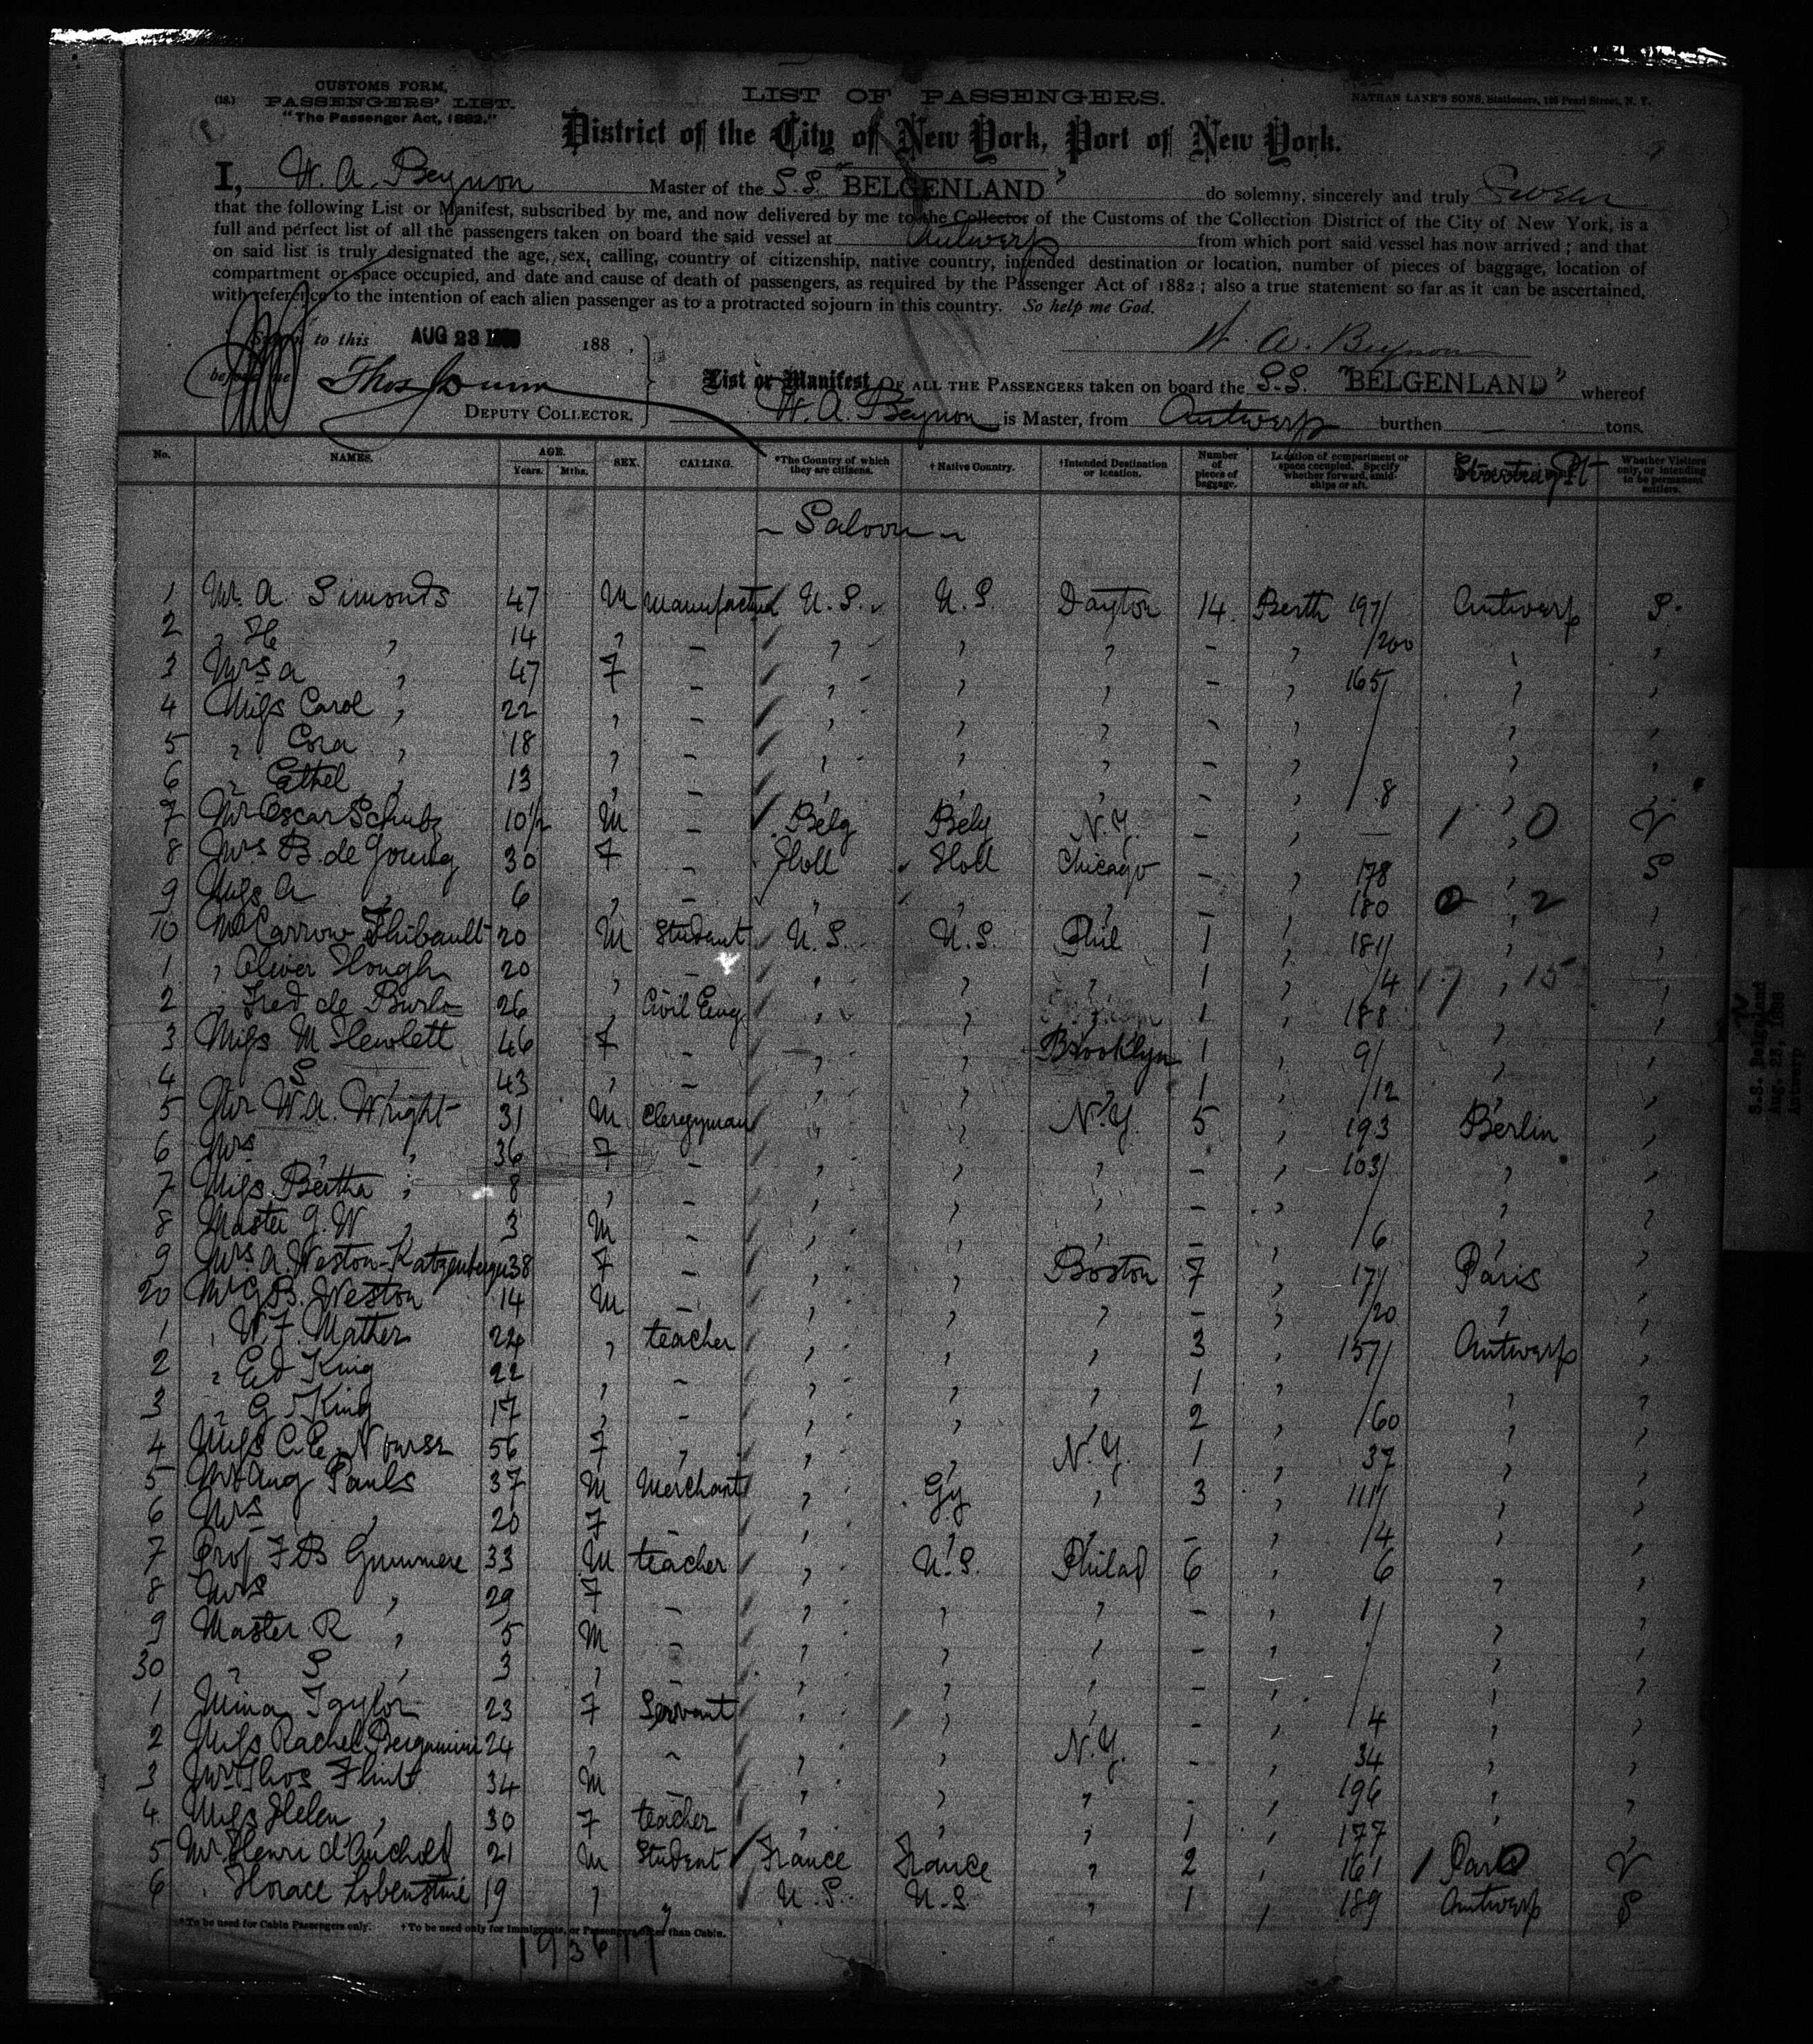 CUSTOMS FORM,
(18.) PASSENGERS' LIST.
"The Passenger Act, 1882."
LIST OF PASSENGERS.
NATHAN LANE'S SONS, Stationers, Pearl Street, N. Y.
District of the City of New York, Port of New York.
I, W. A. Beynon Master of the S.S. "BELGENLAND" do solemny, sincerely and truly Swear
that the following List or Manifest, subscribed by me, and now delivered by me to the Collector of the Customs of the Collection District of the City of New York, is a
full and perfect list of all the passengers taken on board the said vessel at Antwerp from which port said vessel has now arrived; and that
on said list is truly designated the age, sex, calling, country of citizenship, native country, intended destination or location, number of pieces of baggage, location of
compartment or space occupied, and date and cause of death of passengers, as required by the Passenger Act of 1882; also a true statement so far as it can be ascertained,
with reference to the intention of each alien passenger as to a protracted sojourn in this country. So help me God.
Sworn to this AUG 23 188 ,
W. A. Beynon
before me Thos Dunn
DEPUTY COLLECTOR.
List or Manifest OF ALL THE PASSENGERS taken on board the S.S. "BELGENLAND" whereof
W. A. Beynon is Master, from Antwerp burthen — tons.
No. NAMES. AGE. Years. Mths. SEX. CALLING. *The Country of which they are citizens. † Native Country. †Intended Destination or location. Number of pieces of baggage. Location of compartment or space occupied. Specify whether forward, amidships or aft. Starting Pt Whether Visitors only, or intending to be permanent settlers.
~ Saloon ~
1 Mr. A. Simonds 47 M Manufacturer U.S. U.S. Dayton 14. Berth 197/ Antwerp S.
2 " H " 14 " – " " " – " /200 " "
3 Mrs A " 47 F – " " " – " 165/ " "
4 Miss Carol " 22 " – " " " – " / " "
5 " Cora " 18 " – " " " – " / " "
6 " Ethel " 13 " – " " " – " /8 " "
7 Mr Oscar Schultz 10½ M – Belg Belg N.Y. – " — 1 " 0 V
8 Mrs B. de Young 30 F – Holl Holl Chicago – " 178 " S
9 Miss A " 6 " – " " " – " 180 0 " 2 "
10 Mr Carrow Thibault 20 M Student U.S. U.S. Phil 1 " 181/ " "
1 " Oliver Hough 20 " – " " " 1 " /4 17 " 15 "
2 " Fred de Burlo 26 " Civil Eng. " " 1 " 188 " "
3 Miss M Hewlett 46 F – " " Brooklyn 1 " 9/ " "
4 S " 43 " – " " " 1 " /12 " "
5 Mr W.A. Wright 31 M Clergyman " " N.Y. 5 " 193 Berlin "
6 Mrs " " 36 F – " " " – " 103/ " "
7 Miss Bertha " 8 " – " " " – " / " "
8 Master G. W " 3 M – " " " – " /6 " "
9 Mrs A. Weston-Katzenberger 38 F – " " Boston 7 " 17/ Paris "
20 Mr G.B. Weston 14 M – " " " – " /20 " "
1 " W.F. Mather 24 " teacher " " " 3 " 157/ Antwerp "
2 " Ed King 22 " – " " " 1 " " "
3 " G King 17 " – " " " 2 " /60 " "
4 Miss C.E. Nourse 56 F " " " N.Y. 1 " 37 " "
5 Mr Aug Pauls 37 M Merchant " Gy " 3 " 111/ " "
6 Mrs " 20 F – " " " – " /4 " "
7 Prof F B Gummere 33 M teacher " U.S. Philad 6 " 6 " "
8 Mrs " 29 F – " " " – " 1/ " "
9 Master R " 5 M – " " " – " / " "
30 " S " 3 " – " " " – " / " "
1 Mina Taylor 23 F Servant " " " – " /4 " "
2 Miss Rachel Bergamini 24 " – " " N.Y. – " 34 " "
3 Mr Thos Flint 34 M – " " " – " 196 " "
4 Miss Helen " 30 F teacher " " " 1 " 177 " "
5 Mr Henri 21 M Student France France " 2 " 161 1 Paris V
6 " Horace Lobenstine 19 " " U.S. U.S " 1 " 189 Antwerp S
*To be used for Cabin Passengers only. †To be used only for Immigrants, or Passengers other than Cabin.
S.S. Belgenland
Aug. 23, 1888
Antwerp